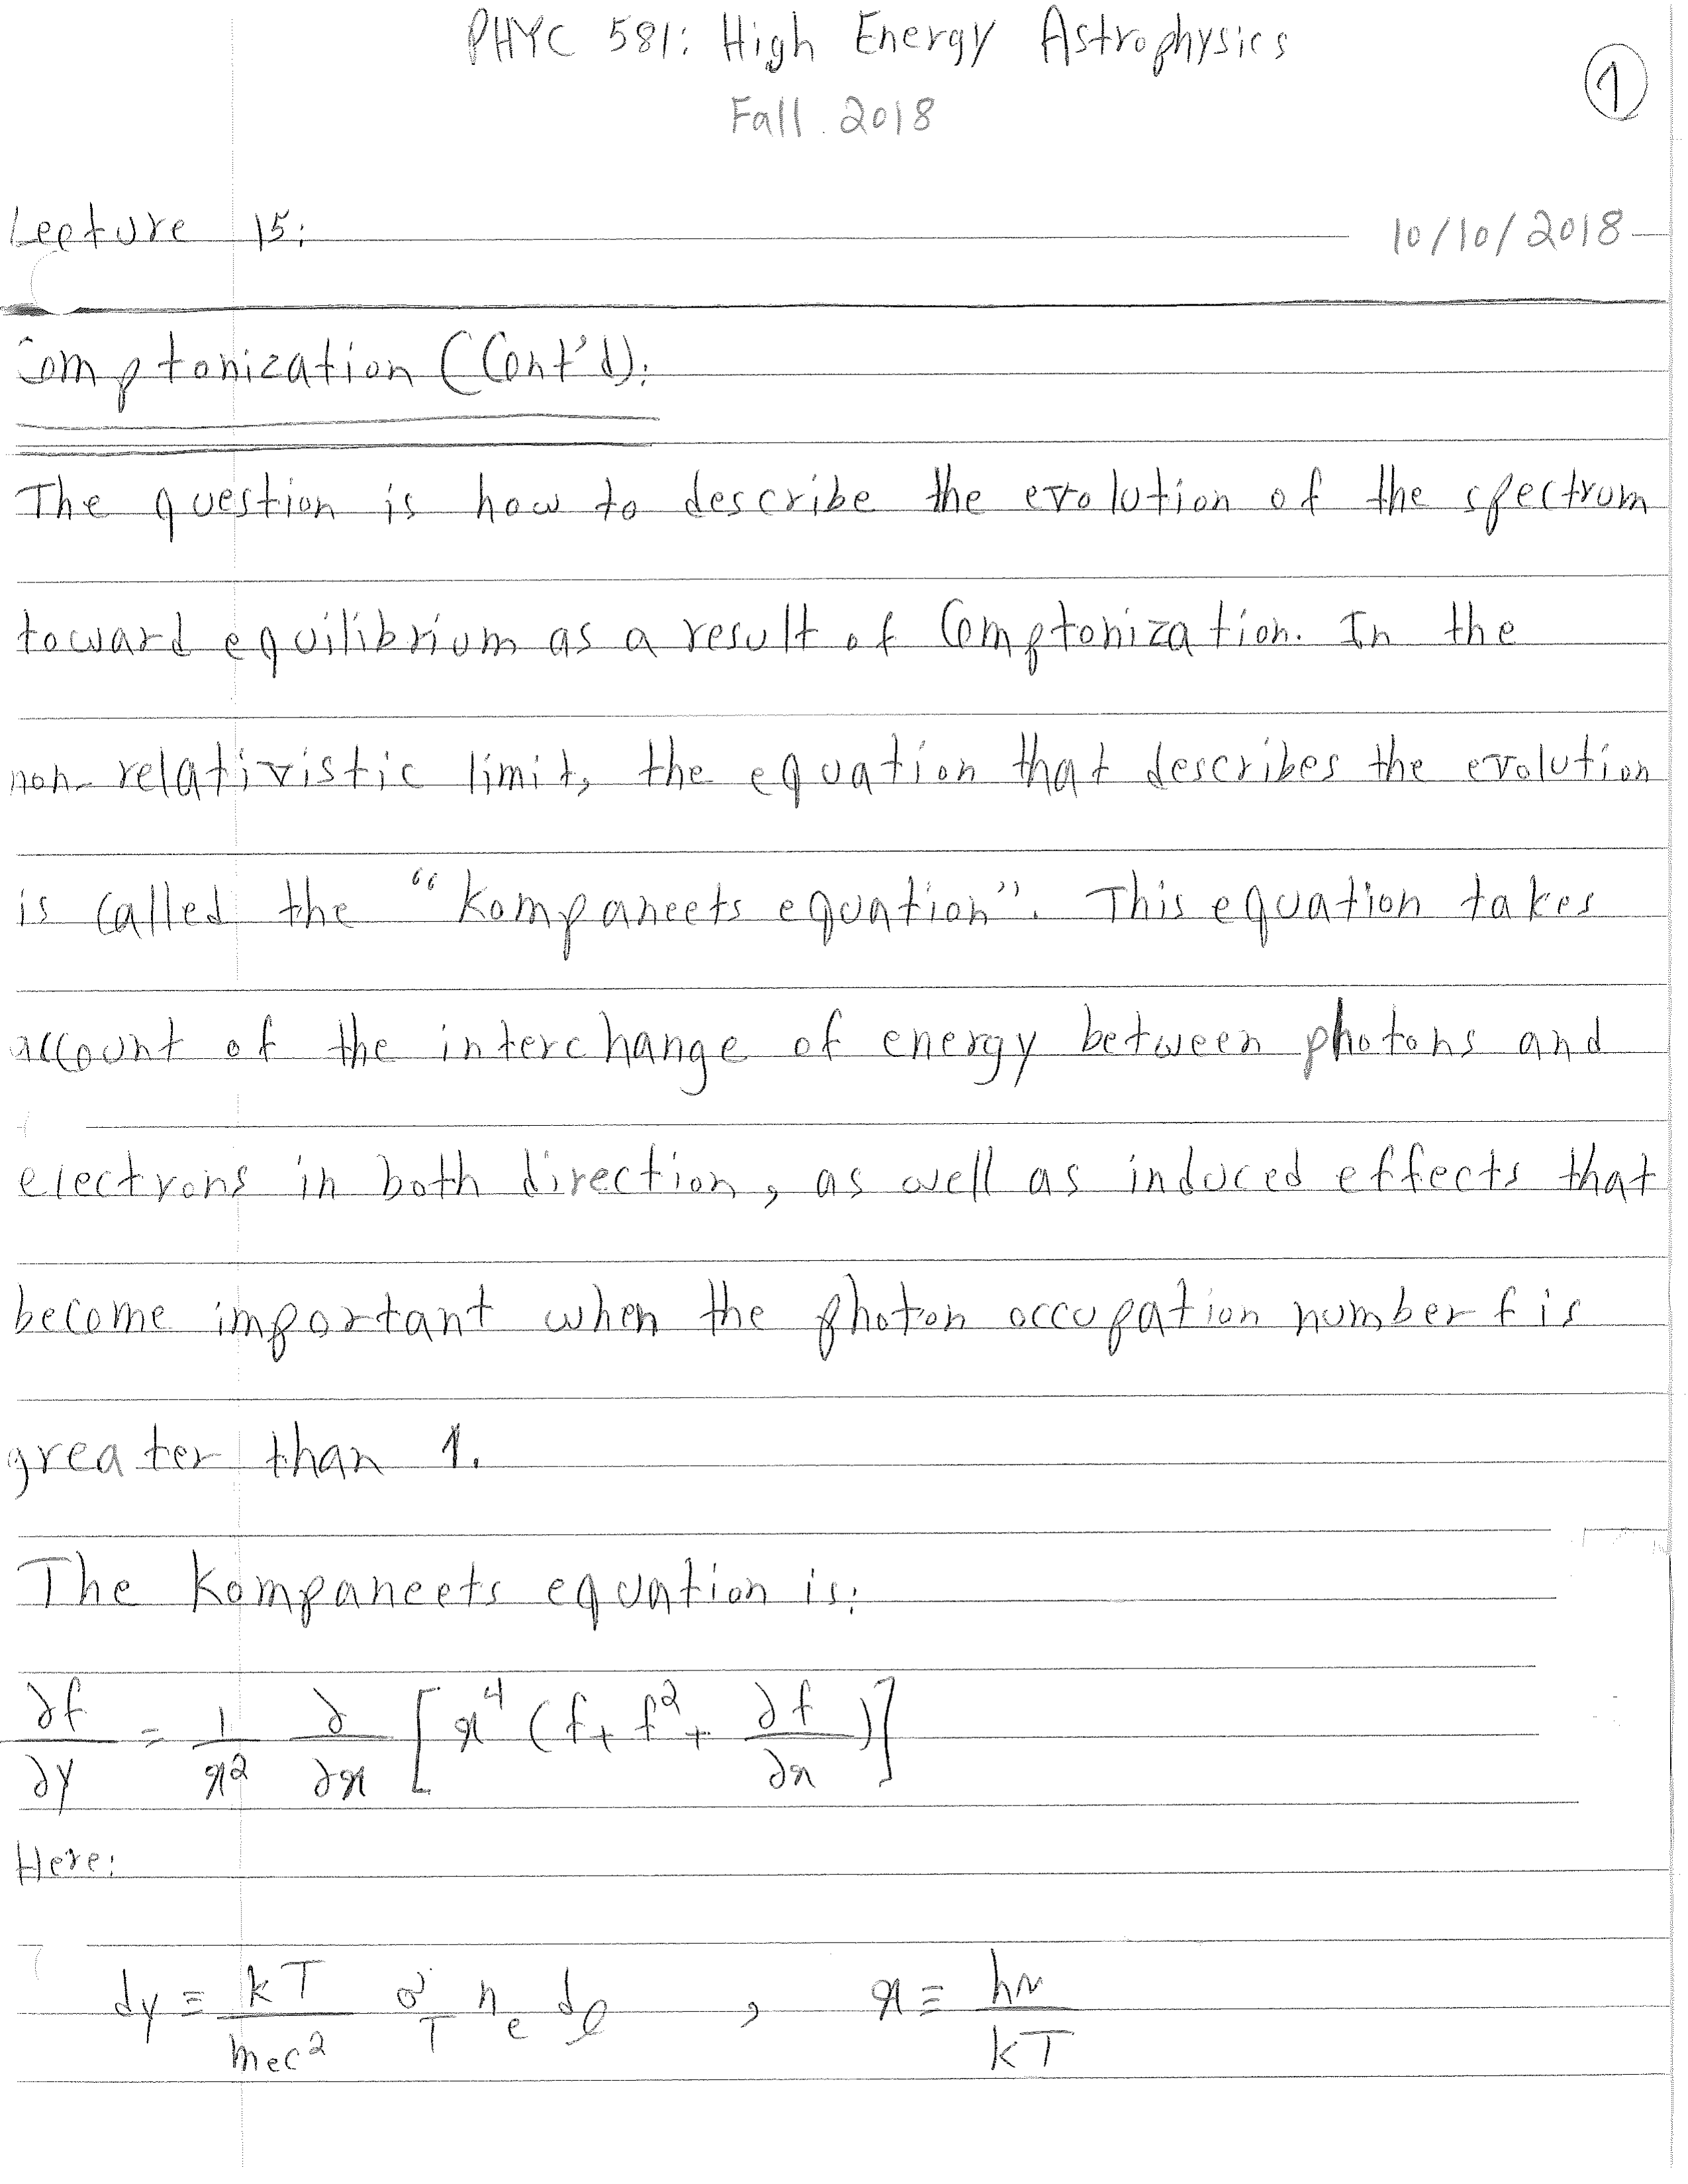 PHYC 581: High Energy Astrophysics
Fall 2018
1
Lecture 15: 10/10/2018
Comptonization (Cont'd):
The question is how to describe the evolution of the spectrum
toward equilibrium as a result of Comptonization. In the
non-relativistic limit, the equation that describes the evolution
is called the "Kompaneets equation". This equation takes
account of the interchange of energy between photons and
electrons in both direction, as well as induced effects that
become important when the photon occupation number f is
greater than 1.
The Kompaneets equation is:
∂f/∂y = 1/x² ∂/∂x [x⁴ (f + f² + ∂f/∂x)]
Here:
dy ≡ kT/mec² σT ne dl , x ≡ hν/kT